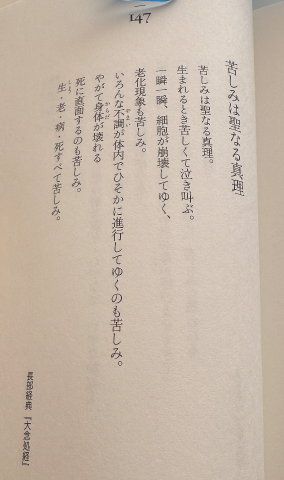 147
苦しみは聖なる真理
苦しみは聖なる真理。
生まれるとき苦しくて泣き叫ぶ。
一瞬一瞬、細胞が崩壊してゆく、
老化現象も苦しみ。
いろんな不調が体内でひそかに進行してゆくのも苦しみ。
やがて身体が壊れる
死に直面するのも苦しみ。
生・老・病・死すべて苦しみ。
長部経典『大念処経』